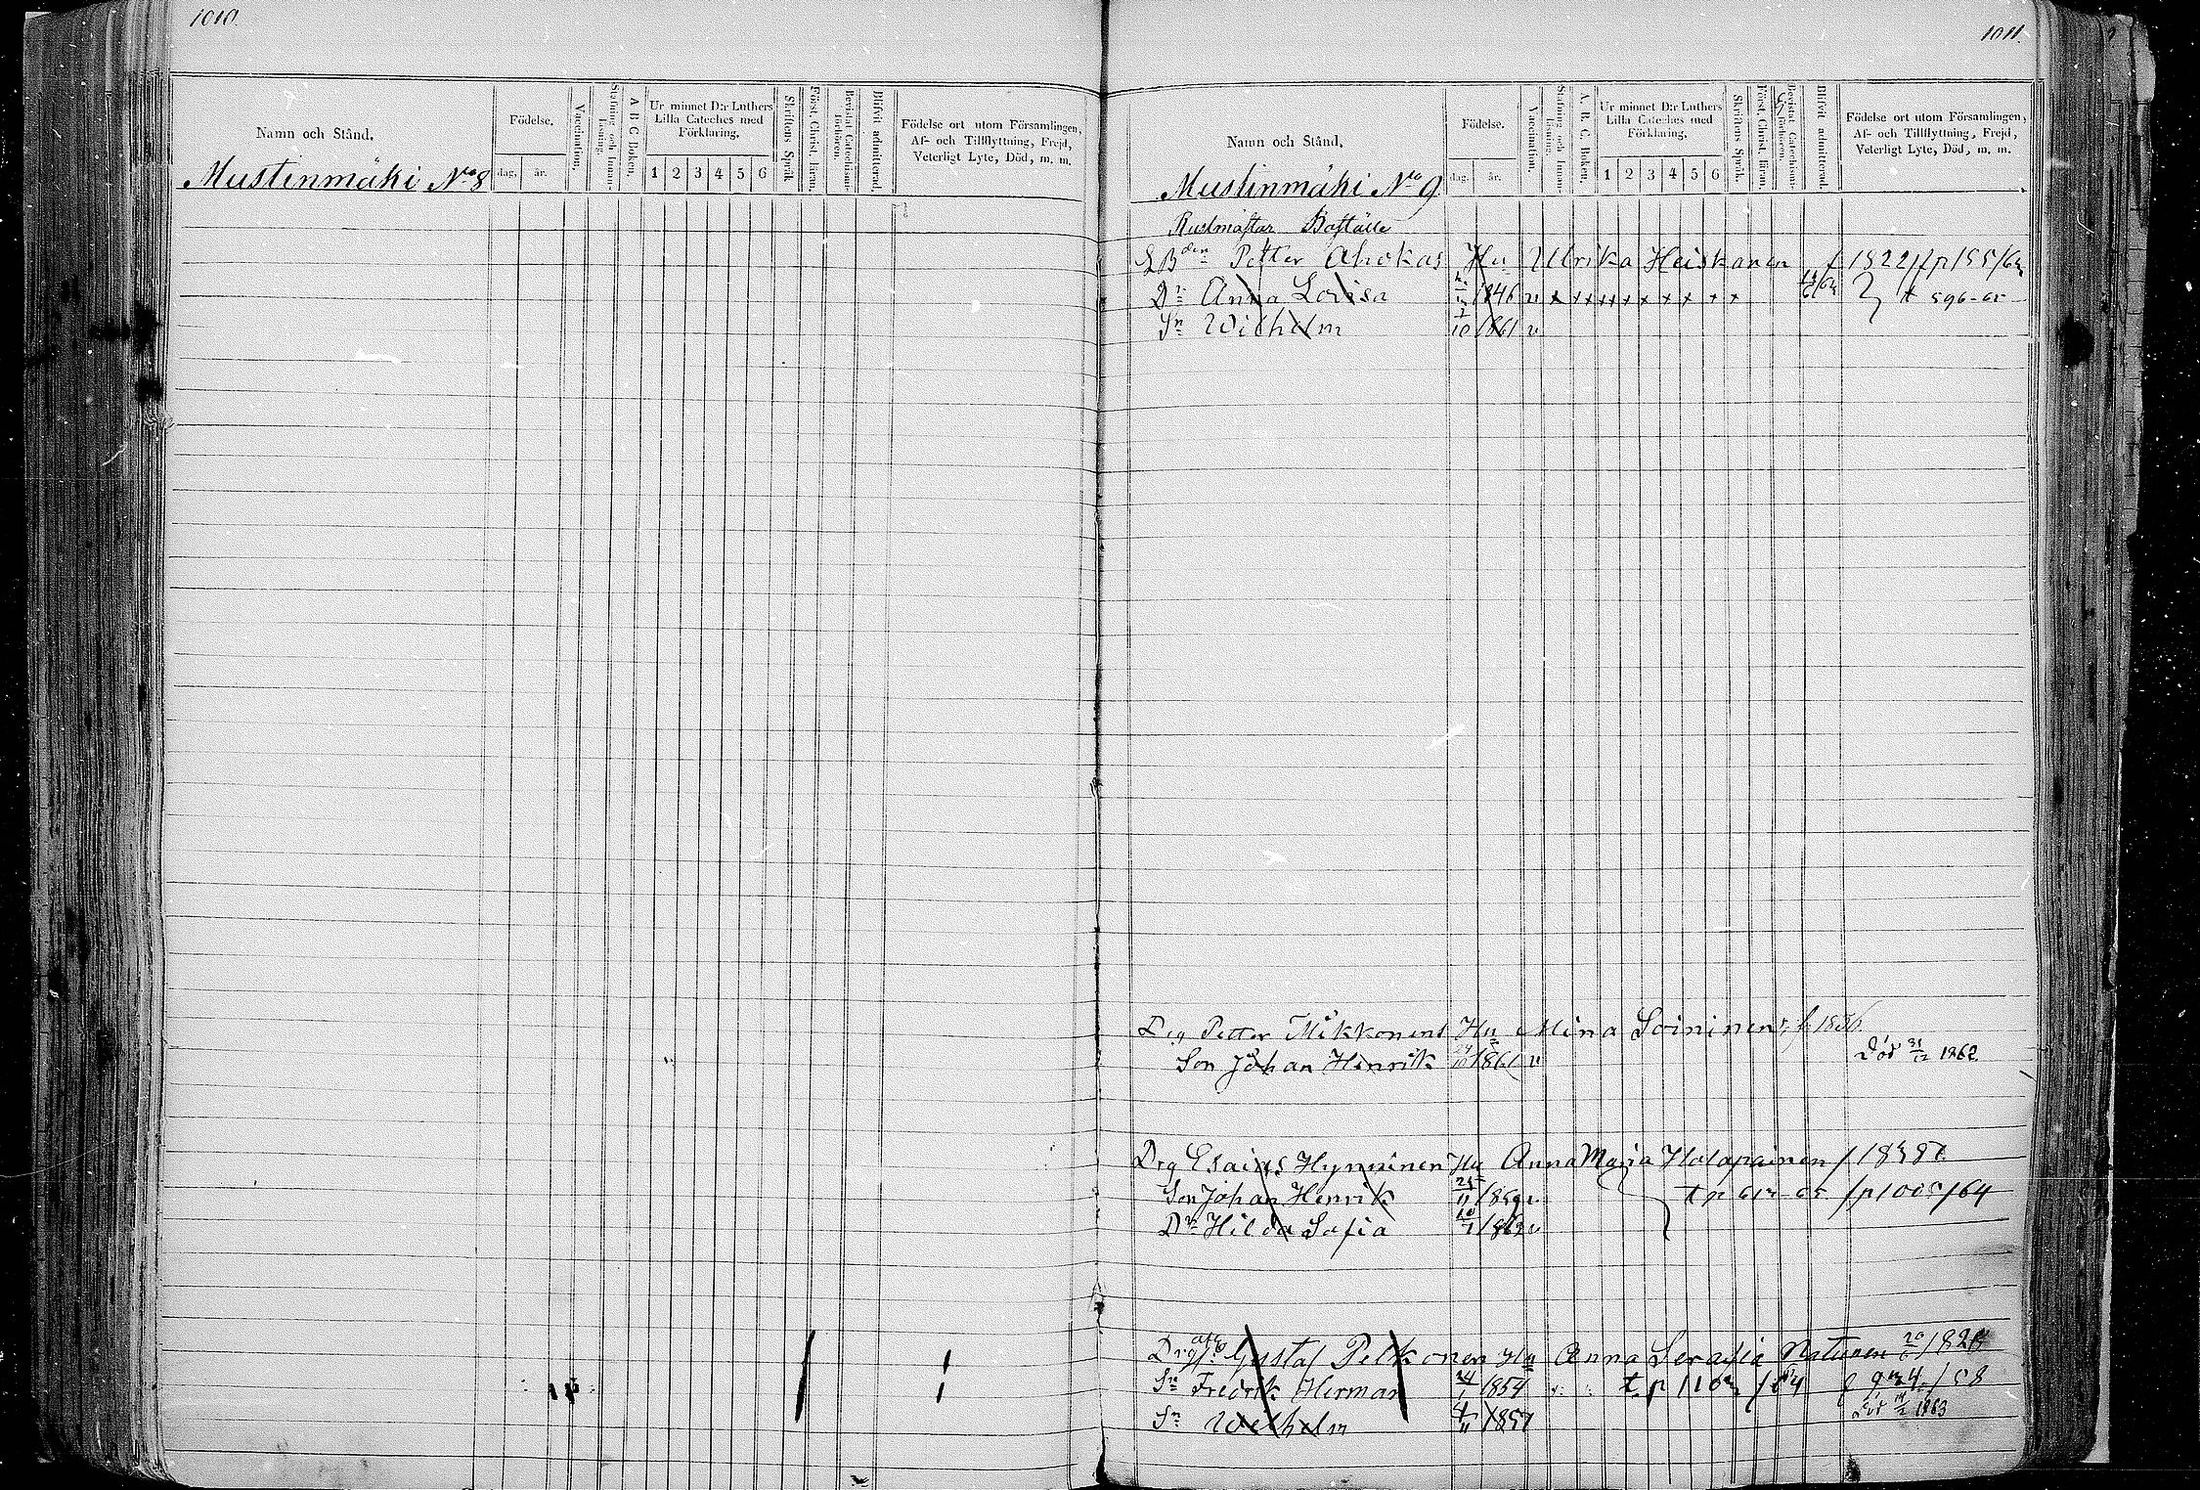 1010.
Namn och Stånd.
Födelse.
dag. år.
Vaccination.
Stafning och Innan-Läsning.
A B C Boken.
Ur minnet D:r Luthers Lilla Cateches med Förklaring.
1 2 3 4 5 6
Skriftens Språk.
Först. Christ. läran.
Bevistat Catechismi-förhören.
Blifvit admitterad.
Födelse ort utom Församlingen,
Af- och Tillflyttning, Frejd,
Veterligt Lyte, Död, m. m.
Mustinmäki N:o 8
1011.
Namn och Stånd.
Födelse.
dag. år.
Vaccination.
Stafning och Innan-Läsning.
A. B. C. Boken.
Ur minnet D:r Luthers Lilla Cateches med Förklaring.
1 2 3 4 5 6
Skriftens Språk.
Först. Christ. läran.
Bevistat Catechismi-förhören.
Blifvit admitterad.
Födelse ort utom Församlingen,
Af- och Tillflyttning, Frejd,
Veterligt Lyte, Död, m. m.
Mustinmäki N:o 9
Rustmästar Boställe
Petter Ahokas Hu Ulrika Heiskanen f 1822
D:r Anna Lovisa 1846 v x x x x x x x x x x
S:n Wilhelm 1861 v
Drg Petter Mikkonens Hu Mina Soininen f. 1836.
Son Johan Henrik 1861 v Död 31/12 1862
Drg Esaias Hynninen Hu Anna Maria Holopainen f 1838
Son Johan Henrik 25/11 1859 v
D:r Hilda Sofia 1863 v
Gustaf Pelkonen Hu Anna Serafia
S:n Fredrik Herman 1854
S:n Wilhelm 4/11 1857 Död 1863